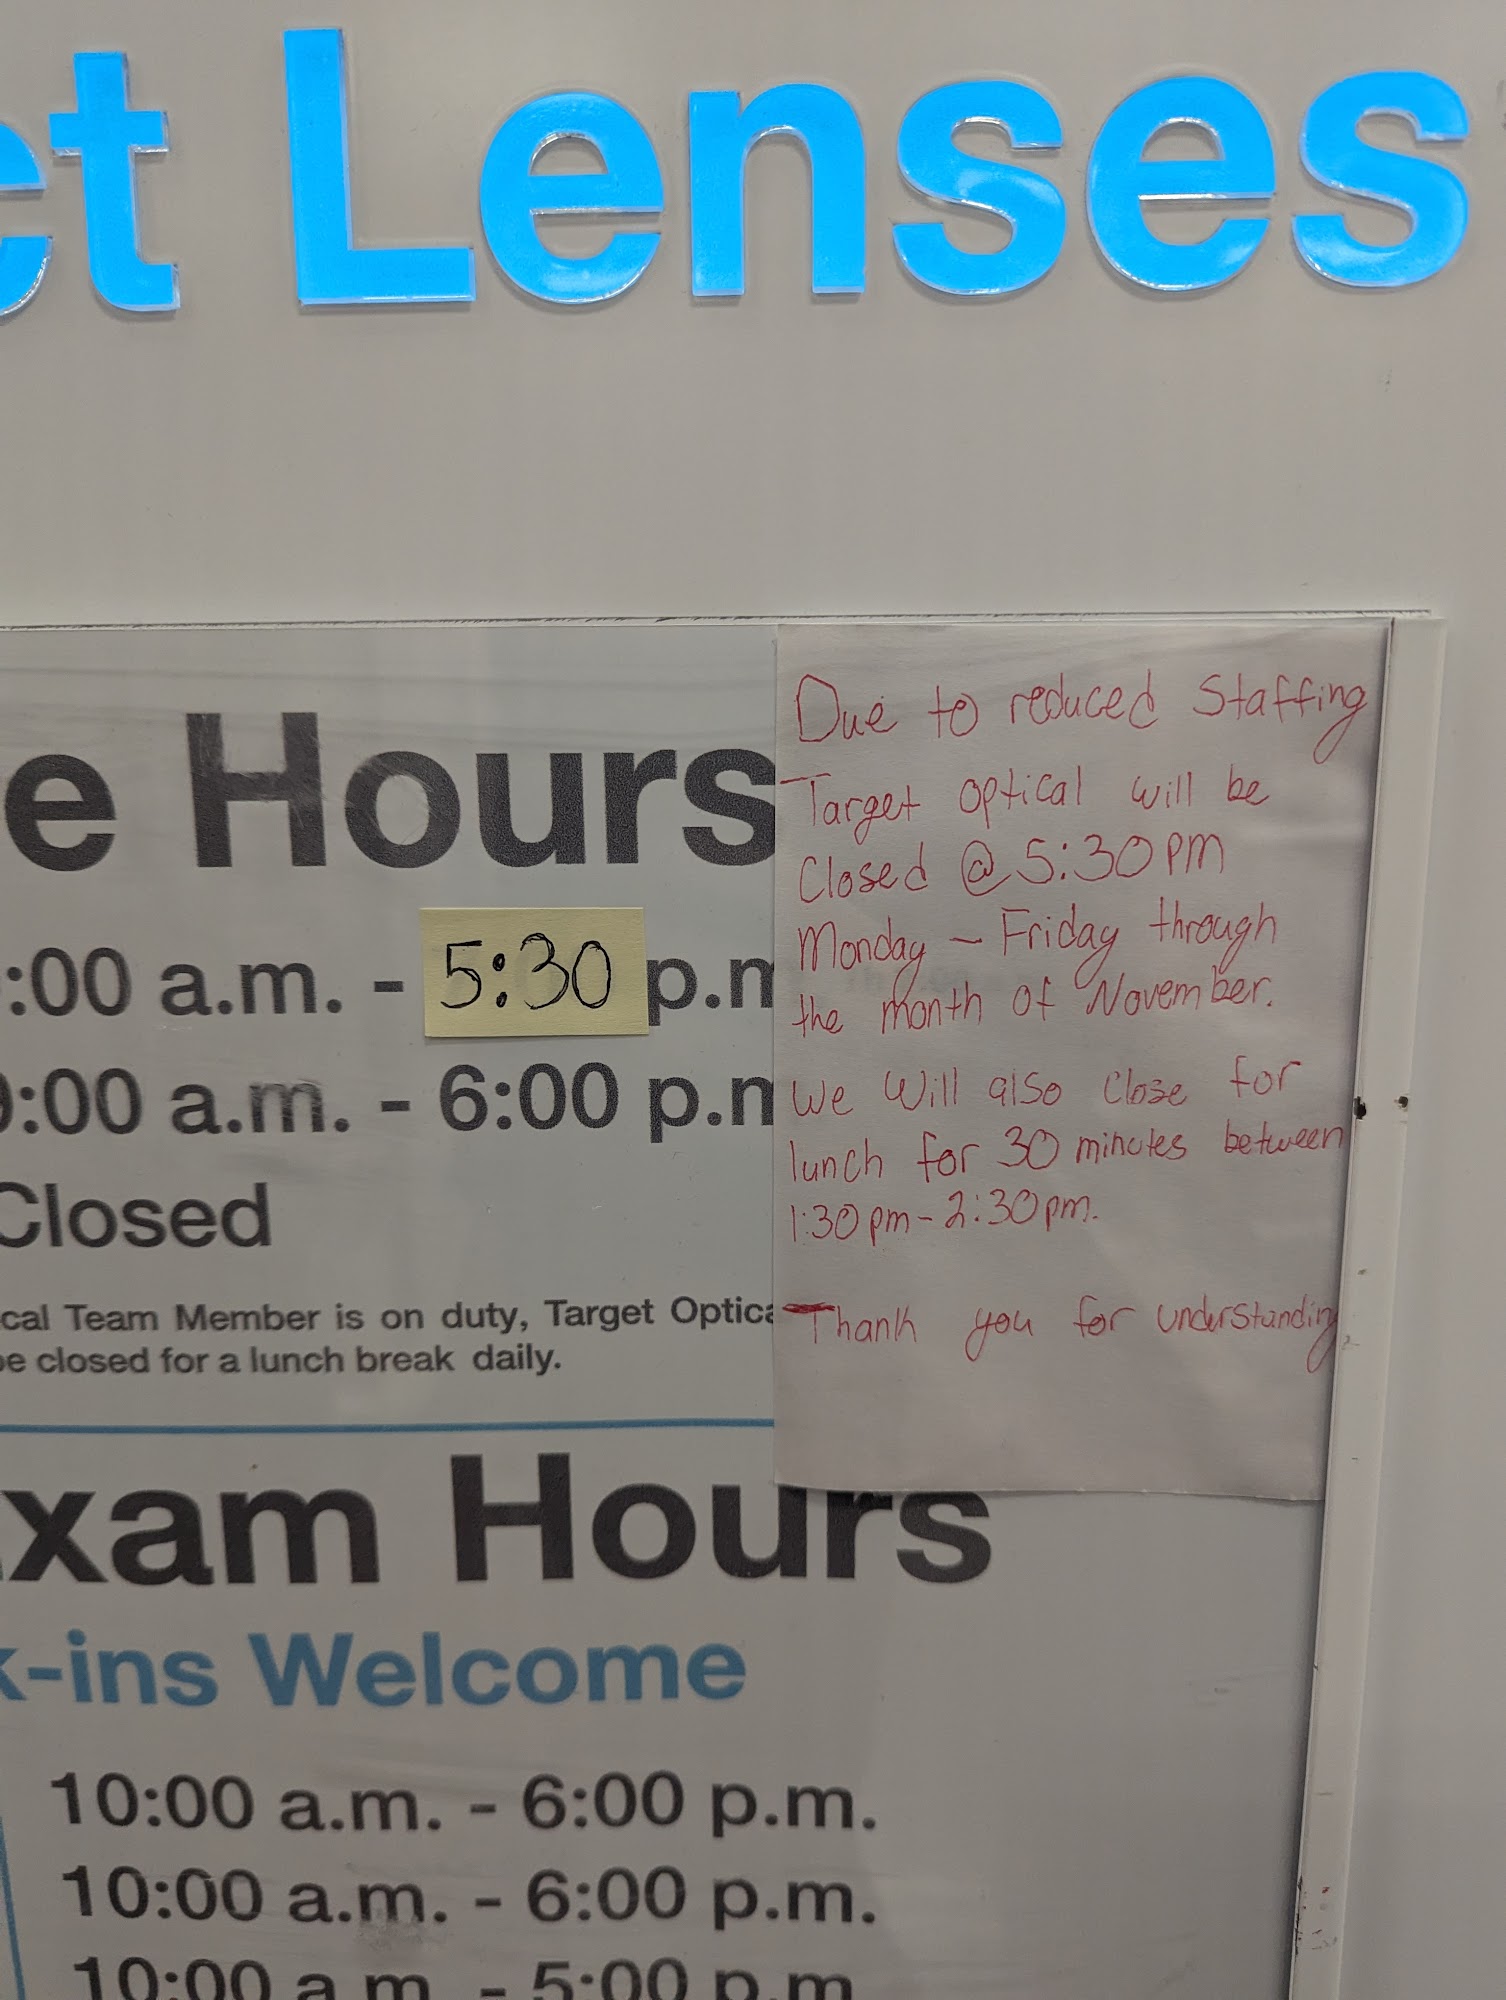 et Lenses
e Hours
:00 a.m. - 5:30 p.m
9:00 a.m. - 6:00 p.m
Closed
cal Team Member is on duty, Target Optica
be closed for a lunch break daily.
Due to reduced Staffing
Target optical will be
Closed @ 5:30pm
Monday - Friday through
the month of November.
We will also close for
lunch for 30 minutes between
1:30pm - 2:30pm.
Thank you for understanding
xam Hours
k-ins Welcome
10:00 a.m. - 6:00 p.m.
10:00 a.m. - 6:00 p.m.
10:00 a.m. - 5:00 p.m